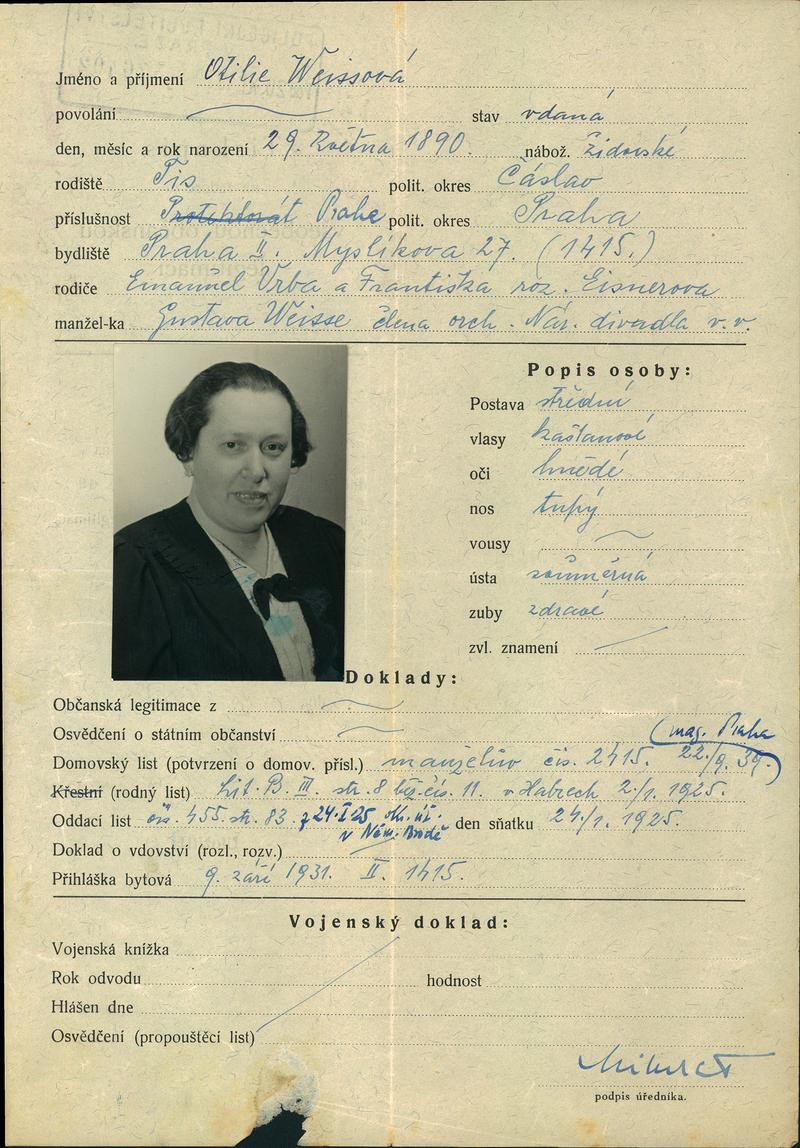 Jméno a příjmení Otilie Weissová
povolání stav vdaná
den, měsíc a rok narození 29. Května 1890. nábož. židovské
rodiště Tis polit. okres Čáslav
příslušnost Protektorát Praha polit. okres Praha
bydliště Praha II. Myslíkova 27. (1415.)
rodiče Emanuel Vrba a Františka roz. Eisnerova
manžel-ka Gustava Weisse člena orch. Nár. divadla v. v.
Popis osoby:
Postava střední
vlasy kaštanové
oči hnědé
nos tupý
vousy
ústa souměrná
zuby zdravé
zvl. znamení
Doklady:
Občanská legitimace z
Osvědčení o státním občanství
(mag. Praha
Domovský list (potvrzení o domov. přísl.) manželův čís. 2415. 22./9. 39.)
Křestní (rodný list) Lit. B. III. str. 8 běž. čís. 11. v Habrech 2./1. 1925.
Oddací list čís. 455. str. 83. z 24.I.25 ok. úř. den sňatku 24./1. 1925.
v Něm. Brodě
Doklad o vdovství (rozl., rozv.)
Přihláška bytová 9. září 1931. II. 1415.
Vojenský doklad:
Vojenská knížka
Rok odvodu hodnost
Hlášen dne
Osvědčení (propouštěcí list)
podpis úředníka.